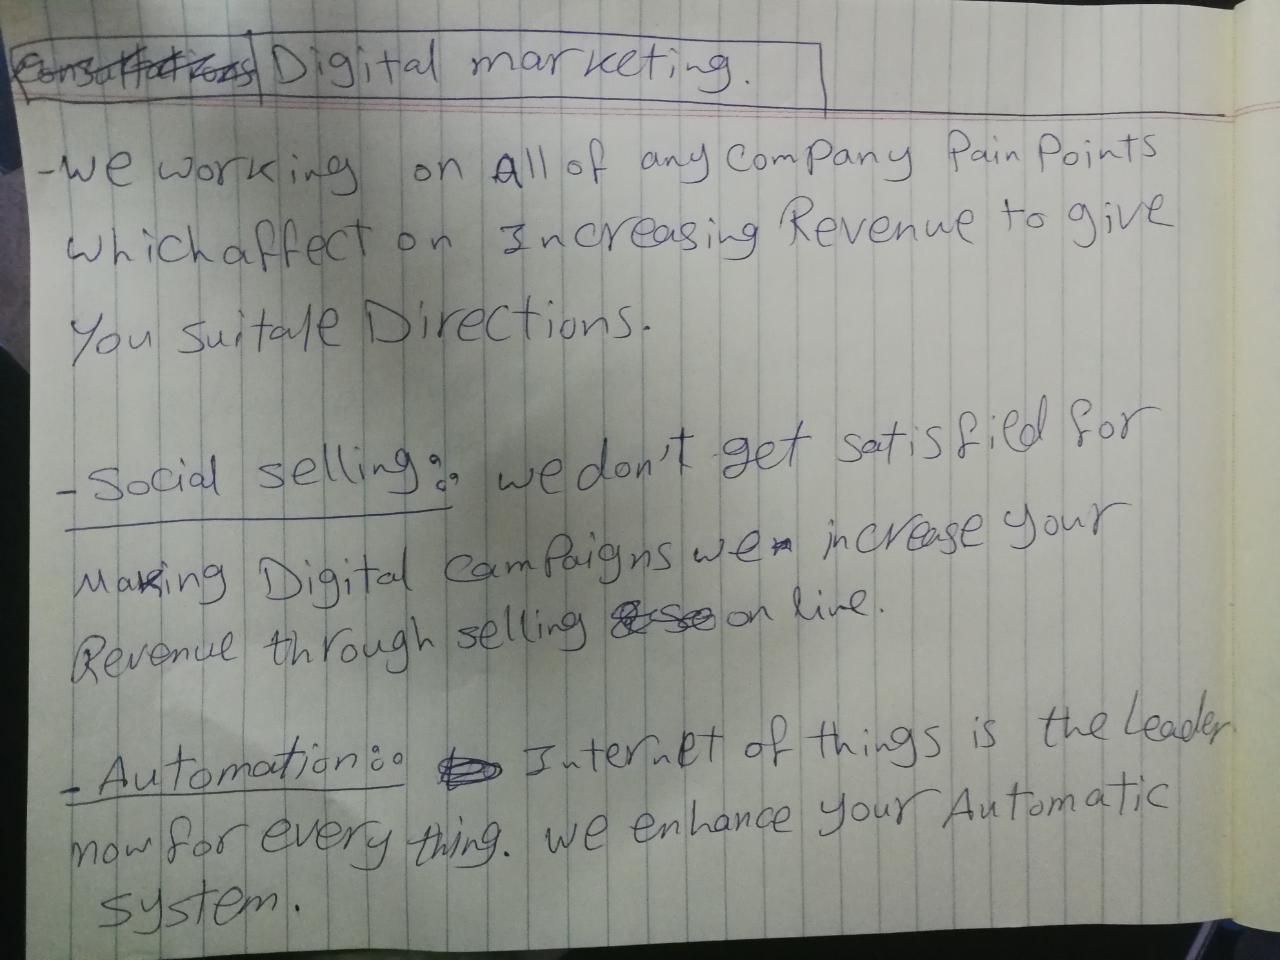 Consultations Digital marketing.
- we working on All of any Company Pain Points
which affect on Increasing Revenue to give
You suitale Directions.
- Social selling:: we don't get satisfied for
Making Digital Campaigns we increase your
Revenue through selling on line.
- Automation:: Internet of things is the Leader
now for every thing. we enhance your Automatic
system.